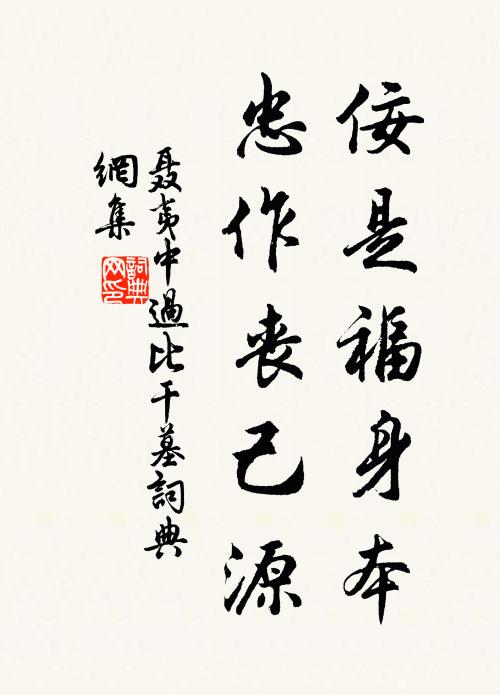 佞是福身本
忠作喪己源
聶夷中過比干墓詞典
網集
詞典
网印